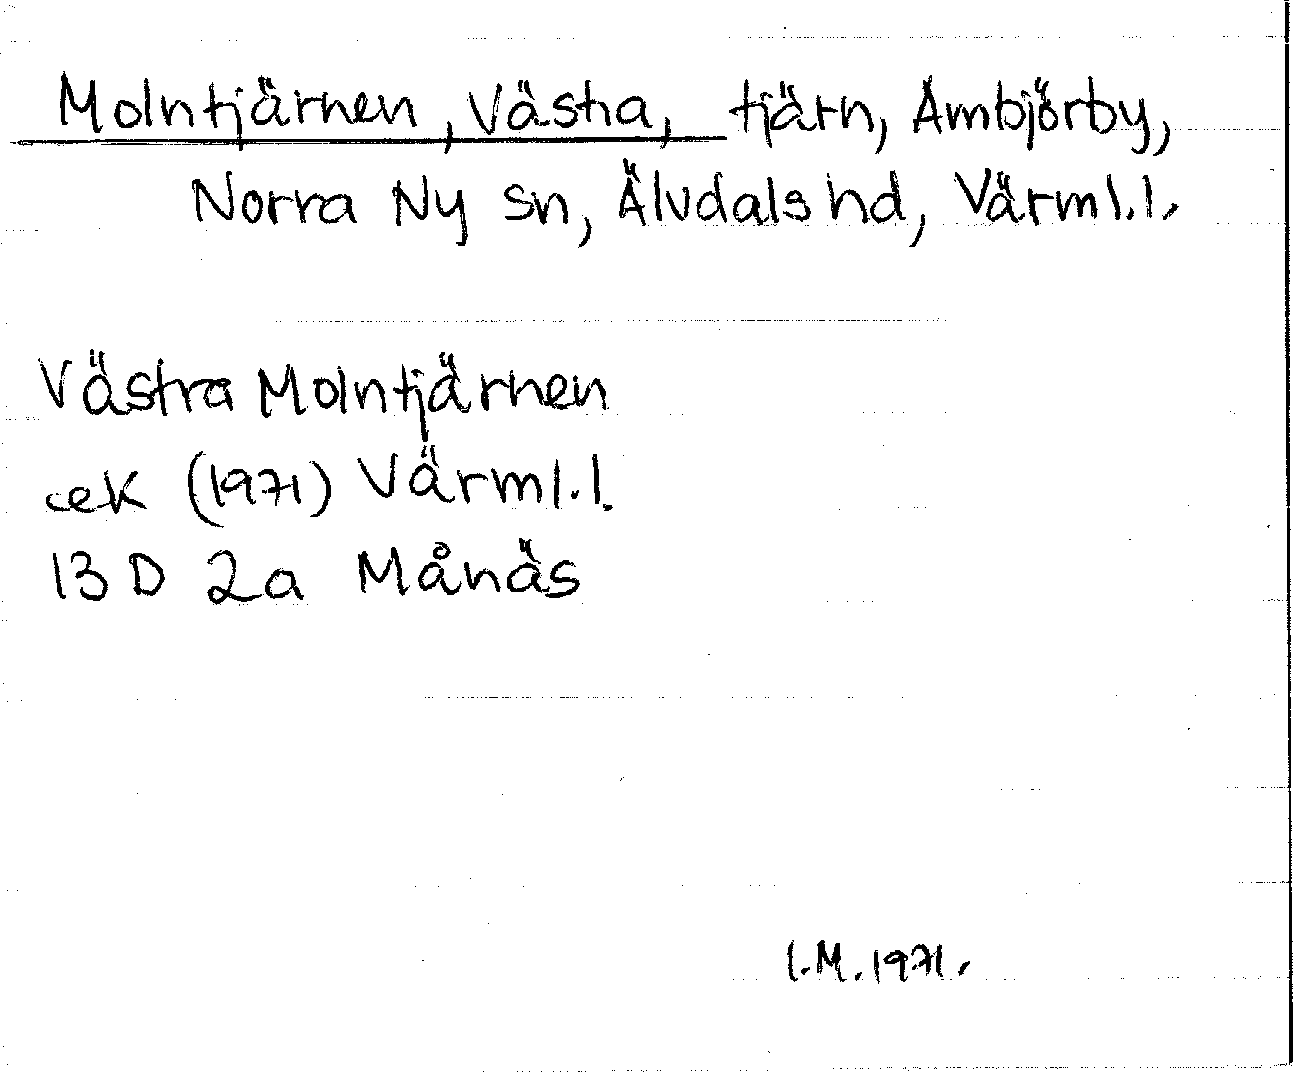 Molntjärnen, Västra, tjärn, Ambjörby,
Norra Ny sn, Älvdals hd, Värml.l.
Västra Molntjärnen
cek (1971) Värml.l.
13 D 2a Månäs
I.M. 1971.